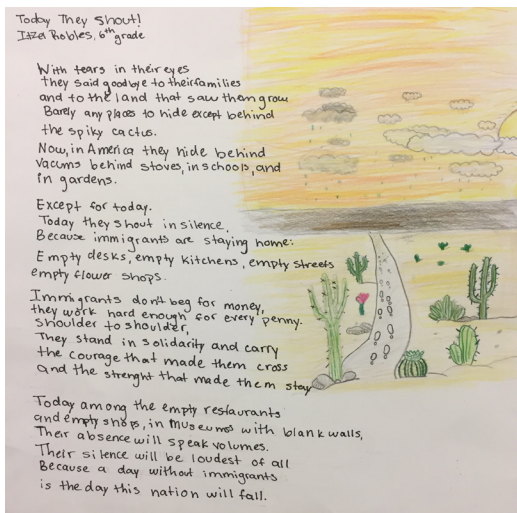 Today They Shout!
Itzel Robles, 6th grade
With tears in their eyes
they said goodbye to their families
and to the land that saw them grow
Barely any places to hide except behind
the spiky cactus.
Now, in America they hide behind
vacums behind stoves, in schools, and
in gardens.
Except for today.
Today they shout in silence,
Because immigrants are staying home:
Empty desks, empty kitchens, empty streets
empty flower shops.
Immigrants don't beg for money,
they work hard enough for every penny.
Shoulder to shoulder,
They stand in solidarity and carry
the courage that made them cross
and the strenght that made them stay
Today among the empty restaurants
and empty shops, in museums with blank walls,
Their absence will speak volumes.
Their silence will be loudest of all
Because a day without immigrants
is the day this nation will fall.